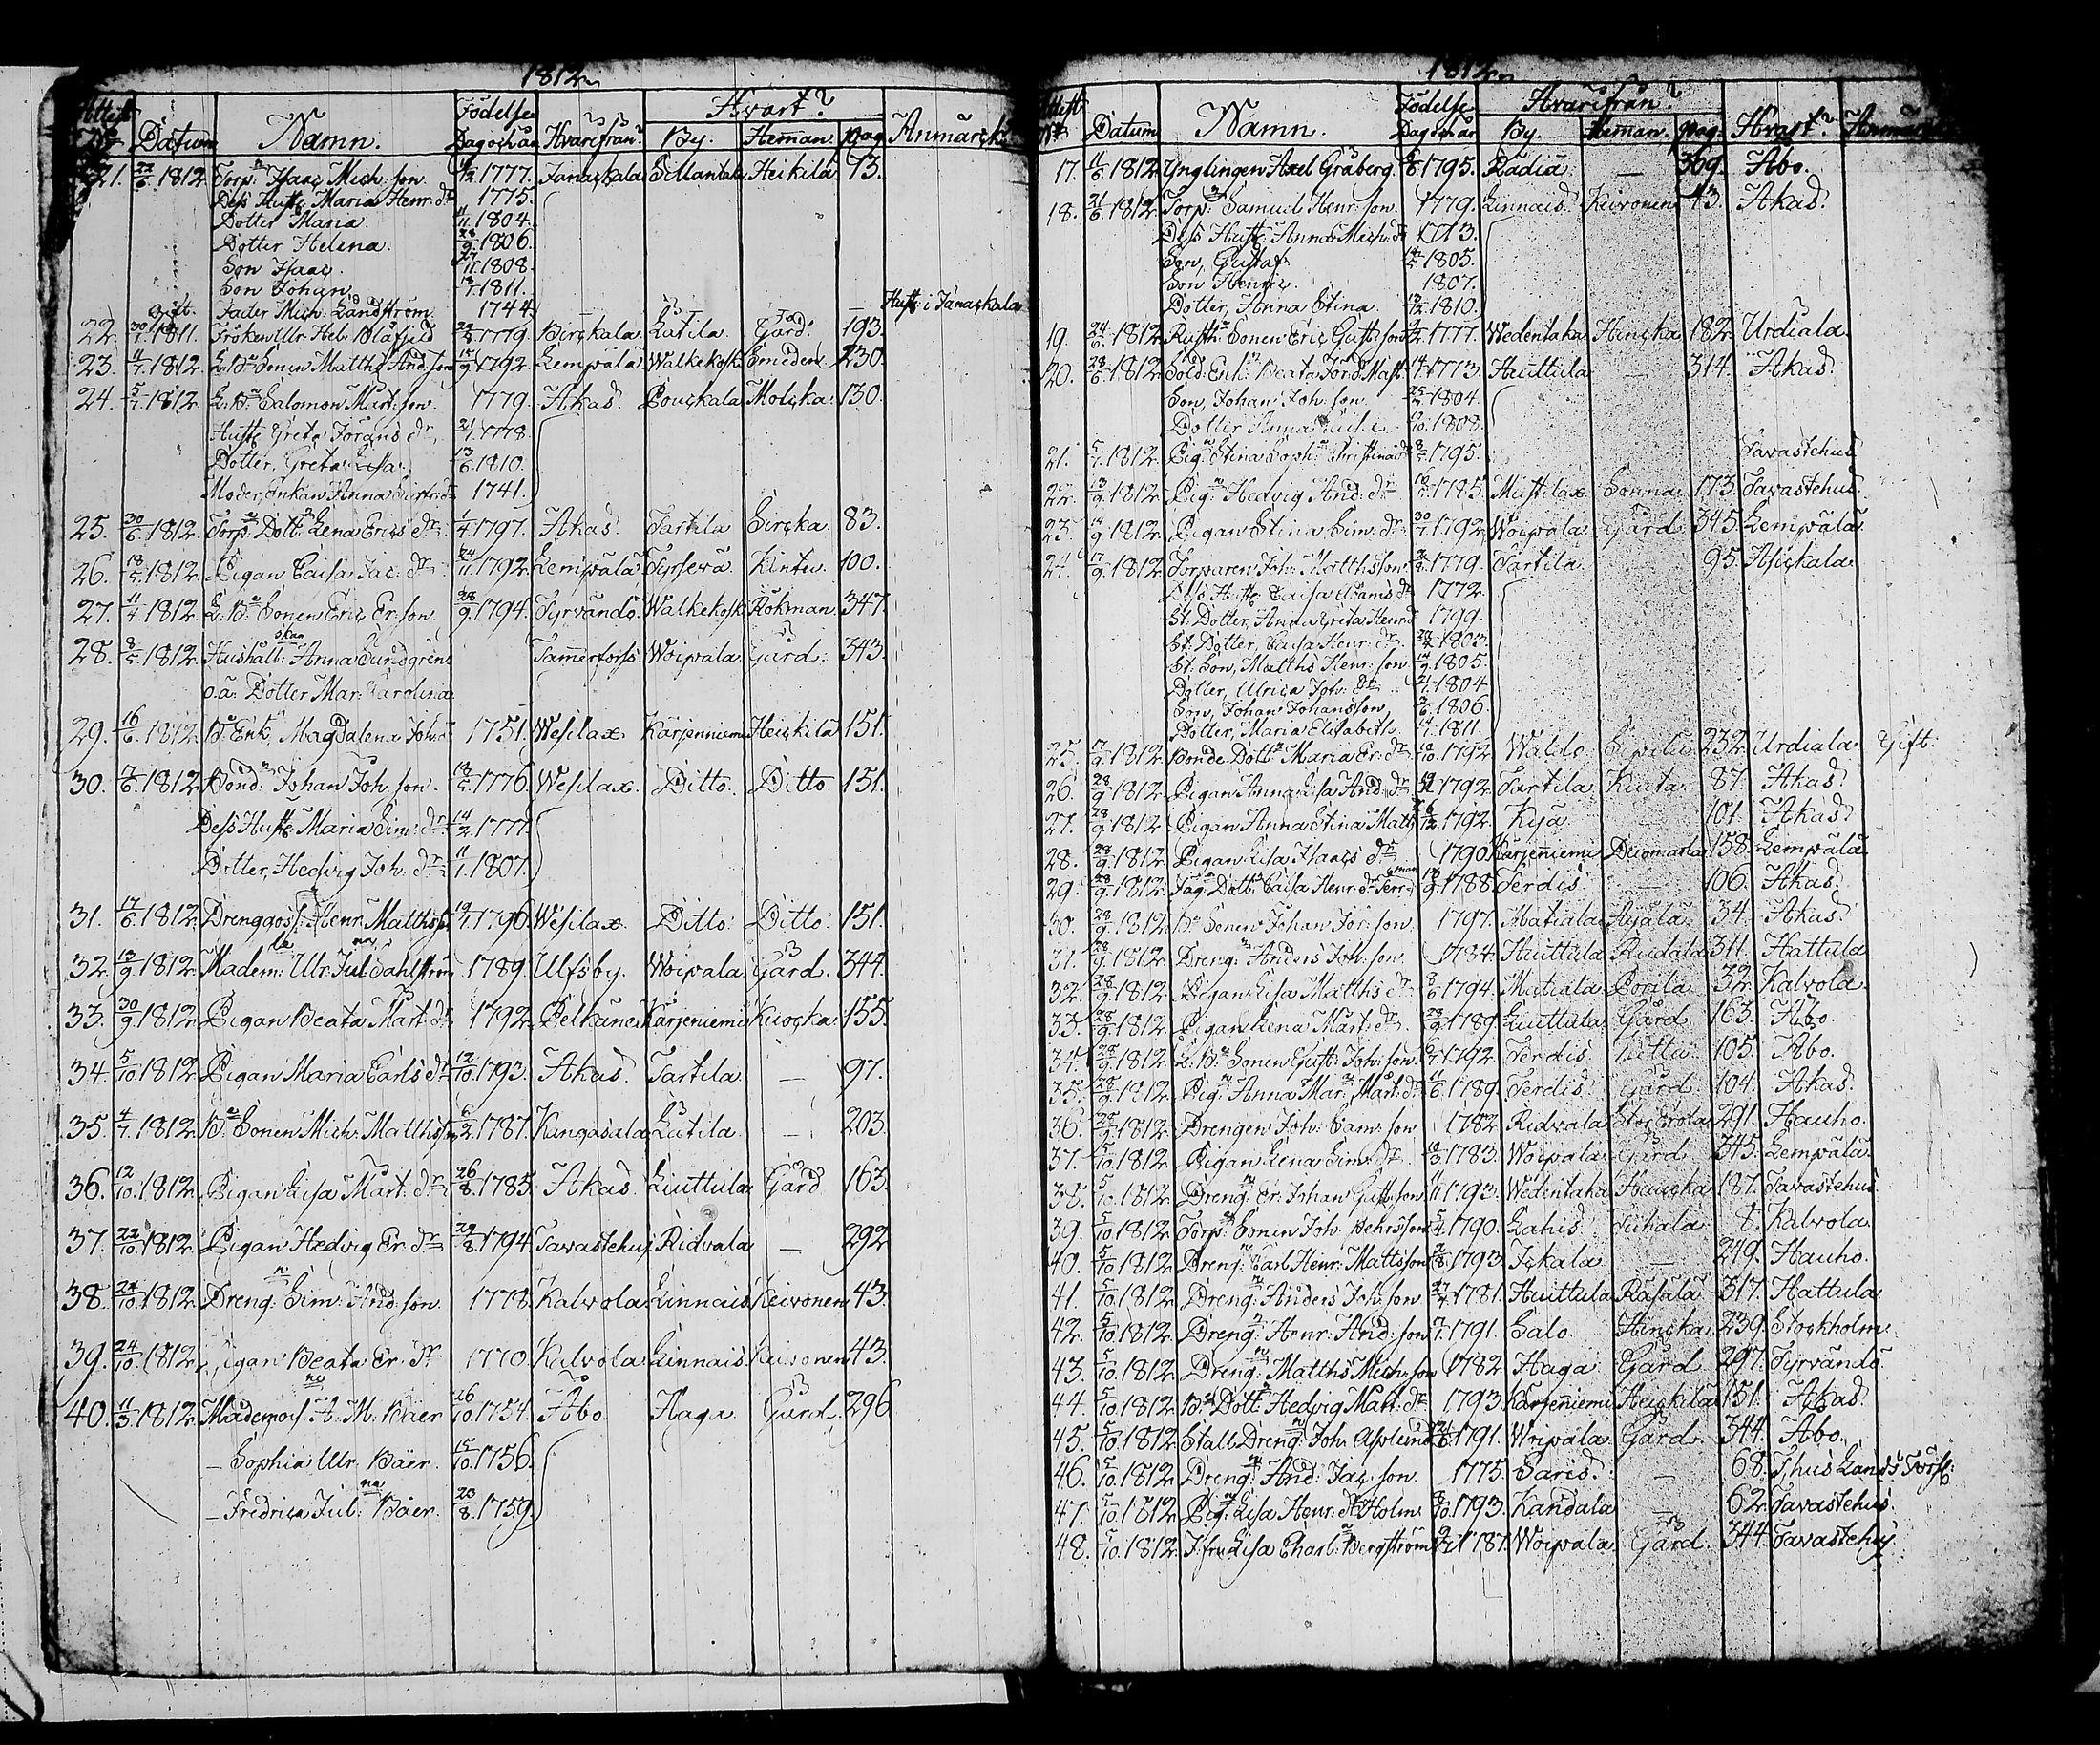 1812
Attest N:o Datum Namn. Födelse Dag och år Hvarifrån? Hvart? By. Heman. pag. Anmärck
21. 22/6 1812 Torp: Isaac Mich: son. 1777. Janackala Sillantaka Heikilä 73.
Dess Hust: Maria Henr: dr 1775.
Dotter Maria. 11/11 1804.
Dotter Helena. 28/9 1806.
Son Isaac. 27/11 1808.
Son Johan. 1811.
Fader Mich: Landström. 1744. Hust: i Janackala
22. 1811. Fröken Ulr: Hel: Blåfjeld 1779. Birckala Latila Gård: 193.
23. 11/7 1812 L:B: Sonen Matths And: son 1792. Lempälä Walkekoski Smeden 230.
24. 5/7 1812 L:B: Salomon Mart: son. 1779. Akas. Pouckala Molcka: 130.
Hust: Greta Jörans dr, 21/1 1778.
Dotter, Greta Lisa. 13/6 1810.
Moder, Enkan Anna 1741.
25. 30/6 1812. Torp: Dott: Lena Erics dr. 1/4 1797. Akas. Tartila Sircka. 83.
26. 18/5 1812. Pigan Caisa Jac: dr 24/11 1792. Lempälä Tyrfevä. Kintu. 100.
27. 11/4 1812. L:B: Sonen Eric Er: son. 28/9 1794. Tyrvändö. Walkekoski Rökman. 347.
28. 8/5 1812. Hushåll: skan Anna Sundgren Tamerforss. Woipala Gård: 343.
o. ä: Dotter Mar: Karolina
29. 16/6 1812. B: Enk: Magdalena Joh: d 1751. Wesilax. Karjenniemi Heickilä 151.
30. 17/6 1812 Bond: Johan Joh: son. 18/5 1776. Wesilax. Ditto. Ditto. 151.
Dess Hust: Maria Sim: dr 14/2 1777.
Dotter, Hedvig Joh: dr 11/1 1807.
31. 17/6 1812 Drenggoss: Henr: Matths: s 1796. Wesilax. Ditto: Ditto: 151.
32. 13/9 1812. Madem: Ulr: Jul: Dahlström 1789. Ulfsby. Woipala Gård. 344.
33. 30/9 1812. Pigan Beata Mart: dr 1792. Pelkäne Karjeniemi Kuocka. 155.
34. 5/10 1812. Pigan Maria Carls dr 12/10 1793. Akas. Tartila. — 97.
35. 4/7 1812 B: Sonen Mich: Matths: s 6/2 1787. Kangasala Latila. — 203.
36. 12/10 1812. Pigan Lisa Mart: dr 26/8 1785. Akas. Liuttula Gård 163.
37. 22/10 1812. Pigan Hedvig Er: dr 29/8 1794. Tavastehus Ridvala — 292
38. 24/10 1812. Dreng: Sim: And: son. 1778. Kalvola Linnais Keivonen 43.
39. 24/10 1812. Pigan Beata Er: dr 1770. Kalvola Linnais. Keivonen 43.
40. 11/3 1812. Mademois: A. M: Bäer 26/10 1754. Åbo. Haga. Gård. 296
— Sophia Ulr: Bäer. 15/10 1756.
— Fredrica Jul: Bäer. 23/8 1759.
1812
Attest N:o Datum Namn. Födelse Dag o: år Hvarifrån? By. Heman. pag. Hvart?
17. 11/6 1812 Ynglingen Axel Gråberg. 1795. Rädiä — 369. Åbo.
18. 21/6 1812. Torp: Samuel Henr: son. 1779. Linnais Keivonen 43. Akas.
Dess Hust: Anna Mich: dr 1773.
Son, Gustaf. 1805.
Son Henric. 1807.
Dotter, Anna Stina. 1810.
19. 24/6 1812 Rusth: Sonen Eric Gust: son 1777. Wedentaka Hincka 182. Urdiala.
20. 28/6 1812. Sold: Enk: Beata Jörd Matt: 1773. Huittula — 314. Akas.
Son, Johan Joh: son. 1804.
Dotter Anna 1808.
21. 5/7 1812. Pig: Stina Soph: Christina d 1795. Tavastehus
22. 13/9 1812. Pig: Hedvig And: dr 1785. Mustilax Sonna 173. Tavastehus.
23. 14/9 1812. Pigan Stina Sim: dr 30/7 1792 Woipala Gård 345. Lempälä.
24. 17/9 1812 Torparen Joh: Matthsson 1779. Tartila 95. Asickala.
Dess Hust: Caisa Adams dr 1772.
St: Dotter, Anna Greta Henr: d 1799.
St: Dotter, Caisa Henr: dr 1803.
St: Son, Matths Henr: son 1805.
Dotter, Ulrica Joh: dr 1804
Son, Johan Johansson, 1806.
Dotter, Maria Elisabeth. 1811.
25. 17/9 1812. Bonde Dott: Maria Er: dr 1792 Waldo 232. Urdiala. Gift.
26. 28/9 1812. Pigan Anna Lisa And: dr 1792 Tartila Kiata 87. Akas.
27. 28/9 1812 Pigan Anna Stina Matts 6/12 1792. Kyä — 101. Akas.
28. 28/9 1812. Pigan Lisa Isaacs dr 1790. Karjeniemi Duomarla 158. Lempälä.
29. 28/9 1812. Jäg: Dott: Caisa Henr: dr 1788. Ferdis. — 106. Akas.
30. 28/9 1812 B: Sonen Johan Jör: son. 1797. Matiala Ayälä. 34. Akas.
31. 28/9 1812. Dreng: Anders Joh: son. 1784. Huittula Rudala 311. Hattula
32. 28/9 1812. Pigan Lisa Matths dr 8/6 1794. Matiala Porila 32. Kalvola.
33. 28/9 1812 Pigan Lena Mart: dr. 28/9 1789. Liuttula Gård 163. Åbo.
34. 28/9 1812. L:B: Sonen Gust: Joh: son. 1792. Ferdis 105. Åbo.
35. 28/9 1812 Pig: Anna Mar: Mart: dr 11/6 1789. Ferdis. Gård. 104. Akas.
36. 28/9 1812. Drengen Joh: Sam: son 1782 Ridvala Stor Erola 291. Hauho.
37. 5/10 1812. Pigan Lena Sim: dr 1783. Woipala Gård 345. Lempälä.
38. 5/10 1812. Dreng: Er: Johan Gust: son 1793. Wedentaka Haucka 187. Tavastehus
39. 5/10 1812 Torp: Sonen Joh: Pehrsson 5/4 1790. Lahis 8. Kalvola
40. 5/10 1812. Dreng: Carl Henr: Mattsson 1793. Ickala. — 249. Hauho.
41. 5/10 1812. Dreng: Anders Joh: son 27/4 1781. Huittula Rasala 317. Hattula
42. 5/10 1812 Dreng: Henr: And: son 1791. Salo. Hincka 239. Stockholm.
43. 5/10 1812 Dreng: Matths Mich: son 1782. Haga Gård 297. Tyrvändö
44. 5/10 1812. B: Dott: Hedvig Matt: dr 1793. Karjeniemi Heickilä 151. Akas.
45. 5/10 1812. Stall Dreng: Joh: Asplund 1791. Woipala Gård. 344. Åbo.
46. 5/10 1812 Dreng: And: Jac: son. 1775. Saris. — 68. T:hus Lands Förs:
47. 5/10 1812 Pig: Lisa Henr: dr Holm 8/10 1793. Kandala — 62. Tavastehus.
48. 5/10 1812. J:fru Lisa Charl: Bergström 1787. Woipala Gård. 344. Tavastehus